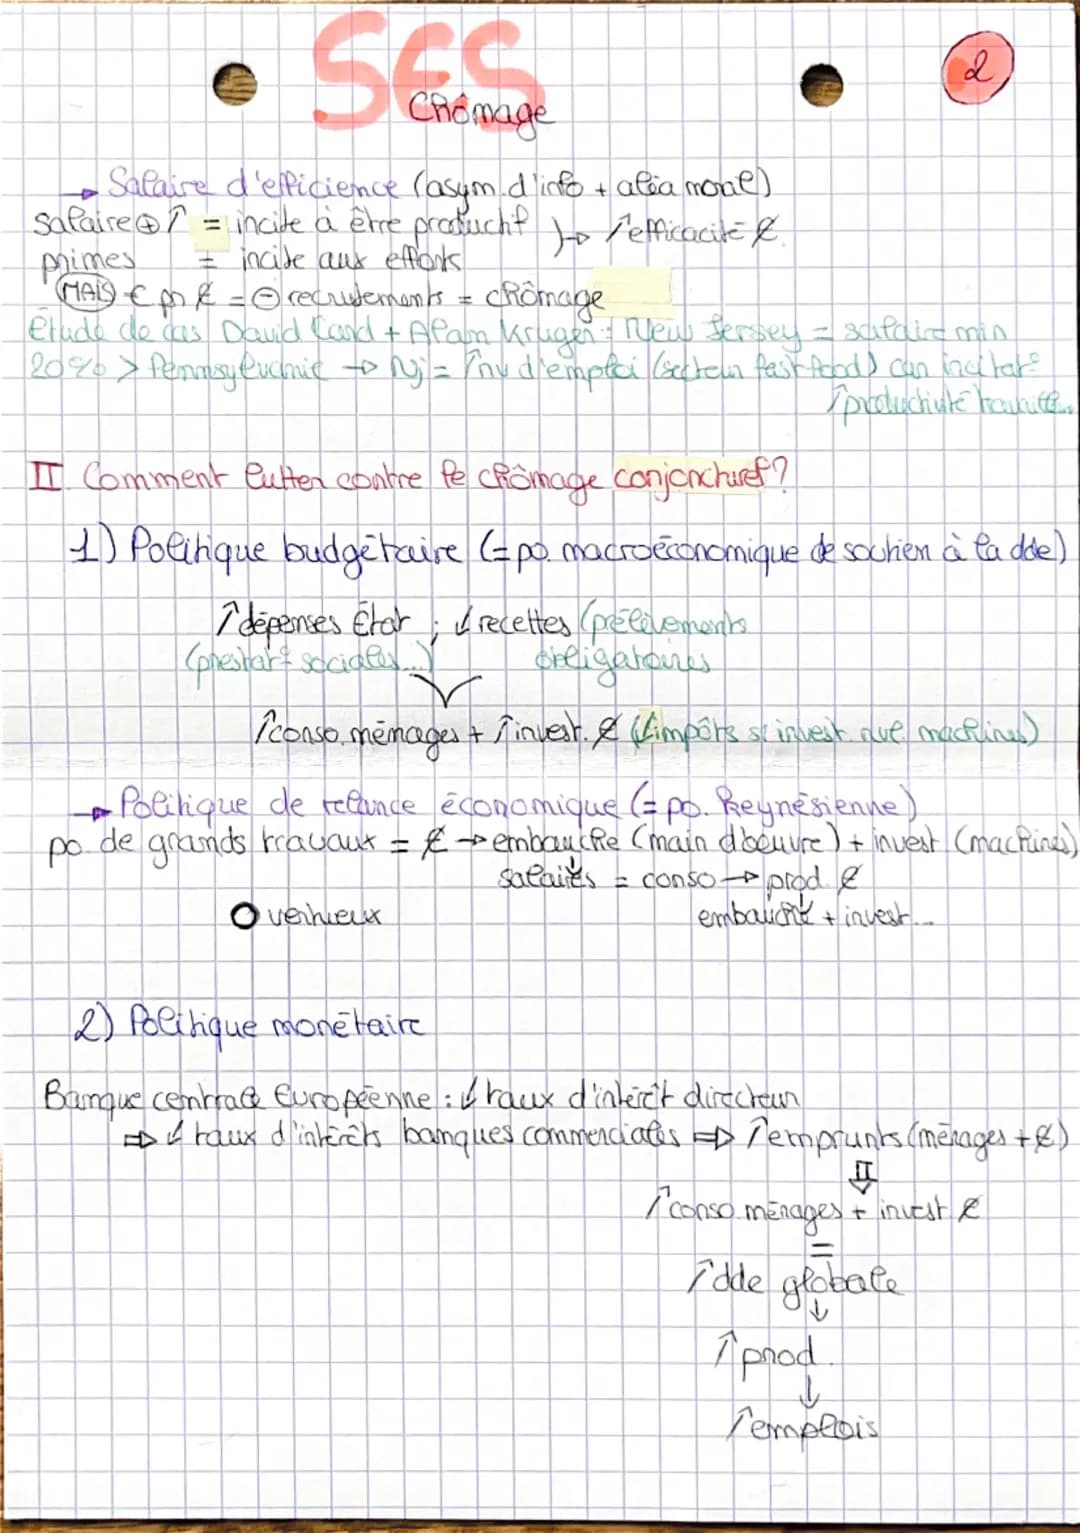 SES
2
Chômage
→ Salaire d'efficience (asym. d'info + aléa moral)
salaire ⊕ ↑ = incite à être productif } → ↑ efficacité E.
primes = incite aux efforts
MAIS € pr E = ⊖ recrutements = chômage
Étude de cas David Card + Alam Kruger : New Jersey = salaire min
20% > Pennsylvanie → Nj = ↑ nv d'emploi (secteur fast food) car incitat°
↑ productivité
II. Comment lutter contre le chômage conjoncturel ?
1) Politique budgétaire (= po. macroéconomique de soutien à la dde)
↑ dépenses État ; ↓ recettes (prélèvements
(prestat° sociales...) obligatoires
↑ conso. ménages + ↑ invest. E (↓ impôts si invest nvel machines)
→ Politique de relance économique (= po. Keynésienne)
po. de grands travaux = E → embauche (main d'oeuvre) + invest (machines)
salaires = conso → prod. E
O vertueux
embauche + invest...
2) Politique monétaire
Banque centrale Européenne : ↓ taux d'intérêt directeur
⇒ ↓ taux d'intérêts banques commerciales ⇒ ↑ emprunts (ménages + E)
⇓
↑ conso. ménages + invest E
=
↑ dde globale
↓
↑ prod.
↓
↑ emplois